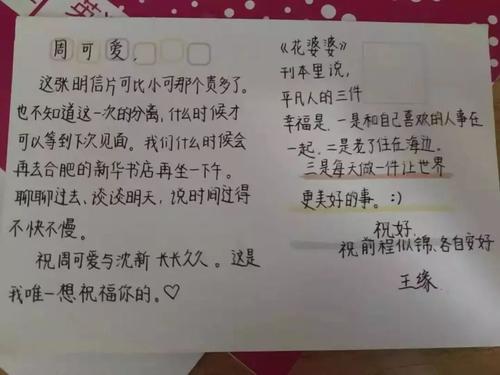 周可爱,
这张明信片可比小可那个贵多了。
也不知道这一次的分离,什么时候才
可以等到下次见面。我们什么时候会
再去合肥的新华书店再坐一下午。
聊聊过去、谈谈明天,说时间过得
不快不慢。
祝周可爱与沈新长长久久。这是
我唯一想祝福你的。♡
《花婆婆》
刊本里说,
平凡人的三件
幸福是,一是和自己喜欢的人事在
一起,二是老了住在海边,
三是每天做一件让世界
更美好的事。:)
祝好,
祝前程似锦、各自安好
王缘